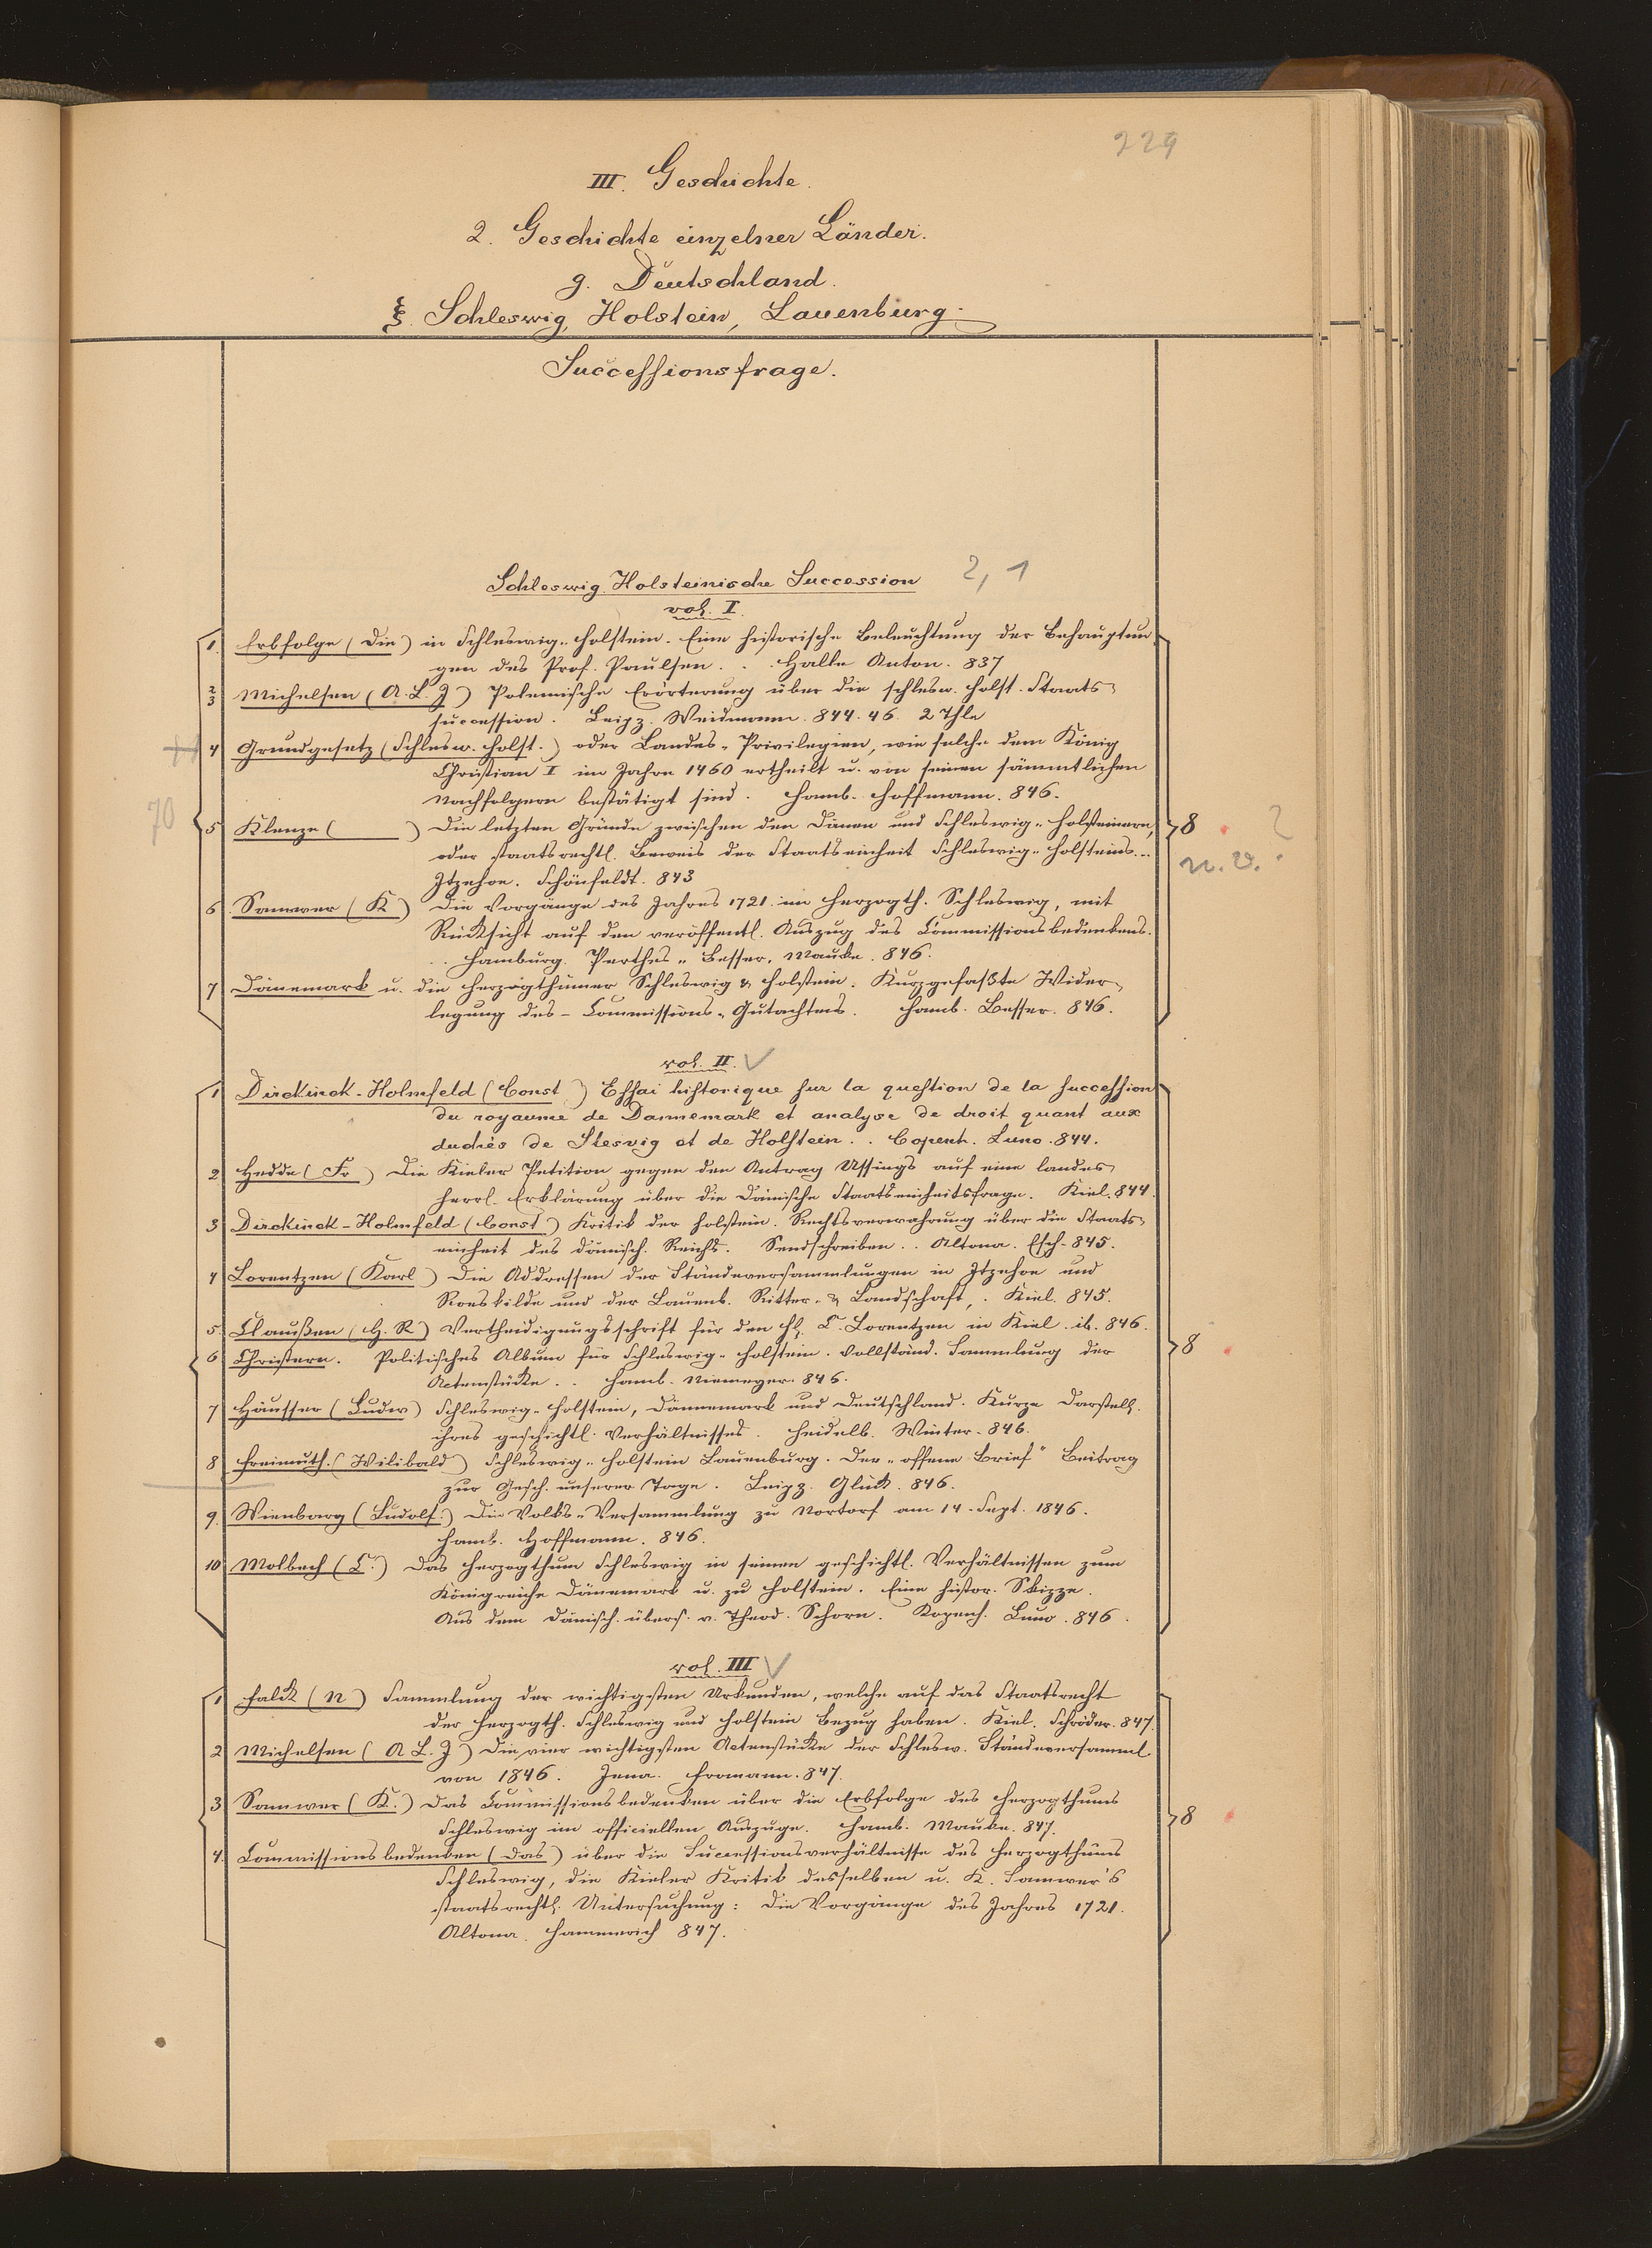 229
III. Geschichte.
2. Geschichte einzelner Länder.
g. Deutschland.
ξ. Schleswig, Holstein, Lauenburg.
Successionsfrage.
Schleswig Holsteinische Succession 2, 1
vol. I.
1. Erbfolge (Die) in Schleswig-Holstein. Eine historische Beleuchtung der Behauptun
gen des Prof. Paulsen. . . Halle Anton. 837
2
3 Michelsen (A. L. J) Polemische Erörterung über die schlesw. holst. Staats-
succession. Leipz. Weidmann. 844. 46. 2 Thle
4 Grundgesetz (Schlesw. holst.) oder Landes-Privilegien, wie solche dem König
Christian I im Jahre 1460 ertheilt u. von seinen sämmtlichen
Nachfolgern bestätigt sind. Hamb. Hoffmann. 846.
70
5 Klenze ( ) Die letzten Gründe zwischen den Dänen und Schleswig-Holsteinern, 8 ?
oder staatsrechtl. Beweis der Staatseinheit Schleswig-Holsteins... n. v.
Itzehoe. Schönfeldt. 843
6. Samwer (K) Die Vorgänge des Jahres 1721 im Herzogth. Schleswig, mit
Rücksicht auf den veröffentl. Auszug des Commissionsbedenkens.
. . Hamburg. Perthes-Besser, Mauke. 846.
7 Dänemark u. die Herzogthümer Schleswig & Holstein. Kurzgefaßte Wider-
legung des - Commissions-Gutachtens. Hamb. Besser. 846.
vol. II.
1 Dirckinck-Holmfeld (Const.) Essai historique sur la question de la succession
du royaume de Dannemark et analyse de droit quant aux
duchés de Slesvig et de Holstein. . Copenh. Luno. 844.
2 Hedde (Fr) Die Kieler Petition gegen den Antrag Ussings auf eine landes-
herrl. Erklärung über die Dänische Staatseinheitsfrage. Kiel. 844.
3 Dirckinck-Holmfeld (Const) Kritik der holstein. Rechtsverwahrung über die Staats-
einheit des dänisch. Reichs. Sendschreiben. . Altona. Esch. 845.
4 Lorentzen (Karl) Die Addressen der Ständeversammlungen in Itzehoe und
Roeskilde und der Lauenb. Ritter- & Landschaft, . Kiel. 845.
5. Claußen (H. R) Vertheidigungsschrift für den C. Lorentzen in Kiel. ib. 846.
6 Christern. Politisches Album für Schleswig-Holstein. Vollständ. Sammlung der 8
Actenstücke. . Hamb. Niemeyer. 846.
7 Häusser (Ludw) Schleswig-Holstein, Dännemark und Deutschland. Kurze Darstell.
ihres geschichtl. Verhältnisses. Heidelb. Winter. 846.
8 Freimuth. (Wilibald) Schleswig-Holstein Lauenburg. Der „offene Brief“ Beitrag
zur Gesch. unserer Tage. Leipz. Glück. 846.
9. Wienbarg (Ludolf.) Die Volks-Versammlung zu Nortorf am 14. Sept. 1846.
Hamb. Hoffmann. 846.
10 Molbech (C.) Das Herzogthum Schleswig in seinen geschichtl. Verhältnissen zum
Königreiche Dänemark u. zu Holstein. Eine histor. Skizze.
Aus dem Dänisch. übers. v. Theod. Schorn. Kopenh. Luno. 846.
vol. III
1 Falck (N) Sammlung der wichtigsten Urkunden, welche auf das Staatsrecht
der Herzogth. Schleswig und Holstein Bezug haben. Kiel. Schröder. 847.
2 Michelsen (A L. J) Die vier wichtigsten Actenstücke der Schlesw. Ständeversamml.
von 1846. Jena. Fromann. 847.
3 Samwer (K.) Das Commissionsbedenken über die Erbfolge des Herzogthums 8
Schleswig im officiellen Auszuge. Hamb. Mauke. 847.
4. Commissionsbedenken (Das) über die Successionsverhältnisse des Herzogthums
Schleswig, die Kieler Kritik desselben u. K. Samwer's
staatsrechtl. Untersuchung: Die Vorgänge des Jahres 1721.
Altona. Hammerich 847.